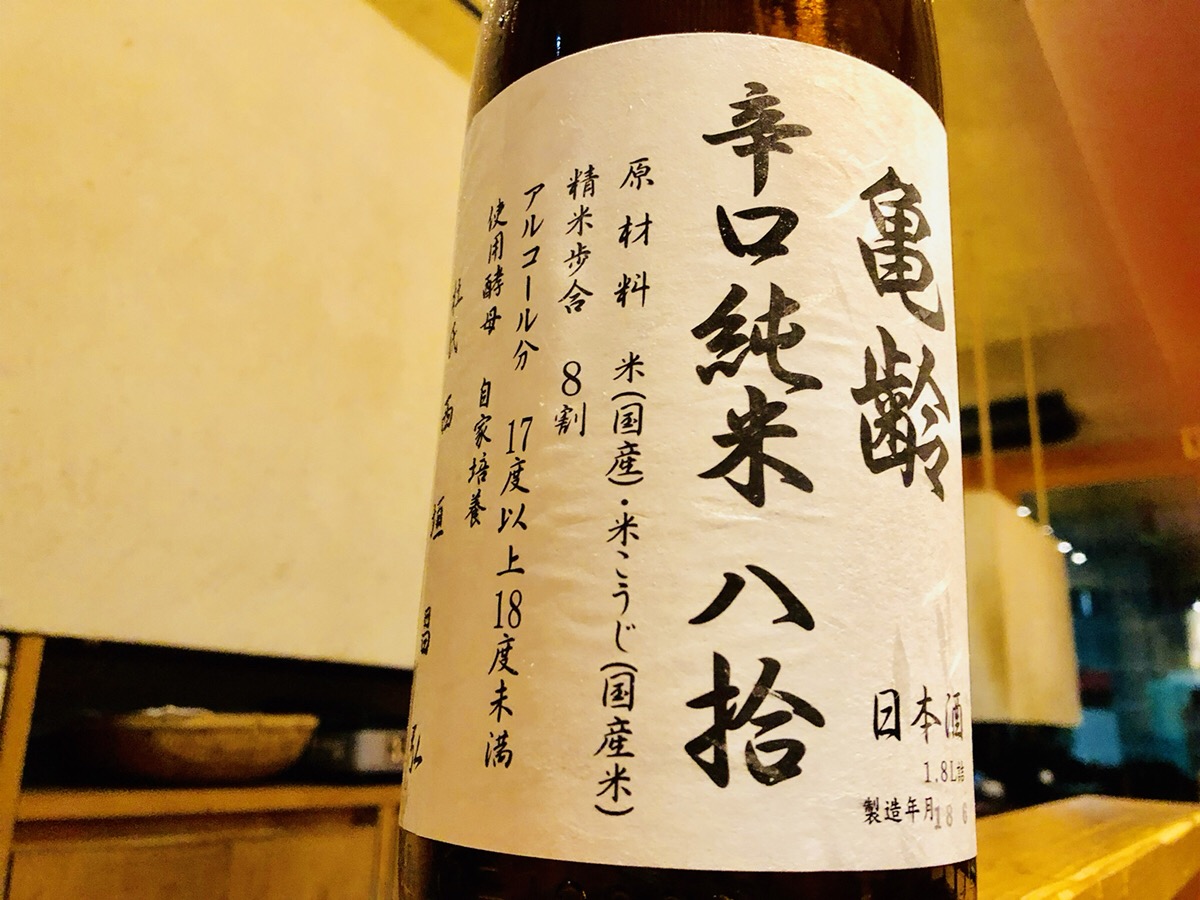 亀齢
辛口純米 八拾
原材料 米(国産)・米こうじ(国産米)
精米歩合 8割
アルコール分 17度以上18度未満
使用酵母 自家培養
杜氏 西垣昌弘
日本酒
1.8L詰
製造年月18 6